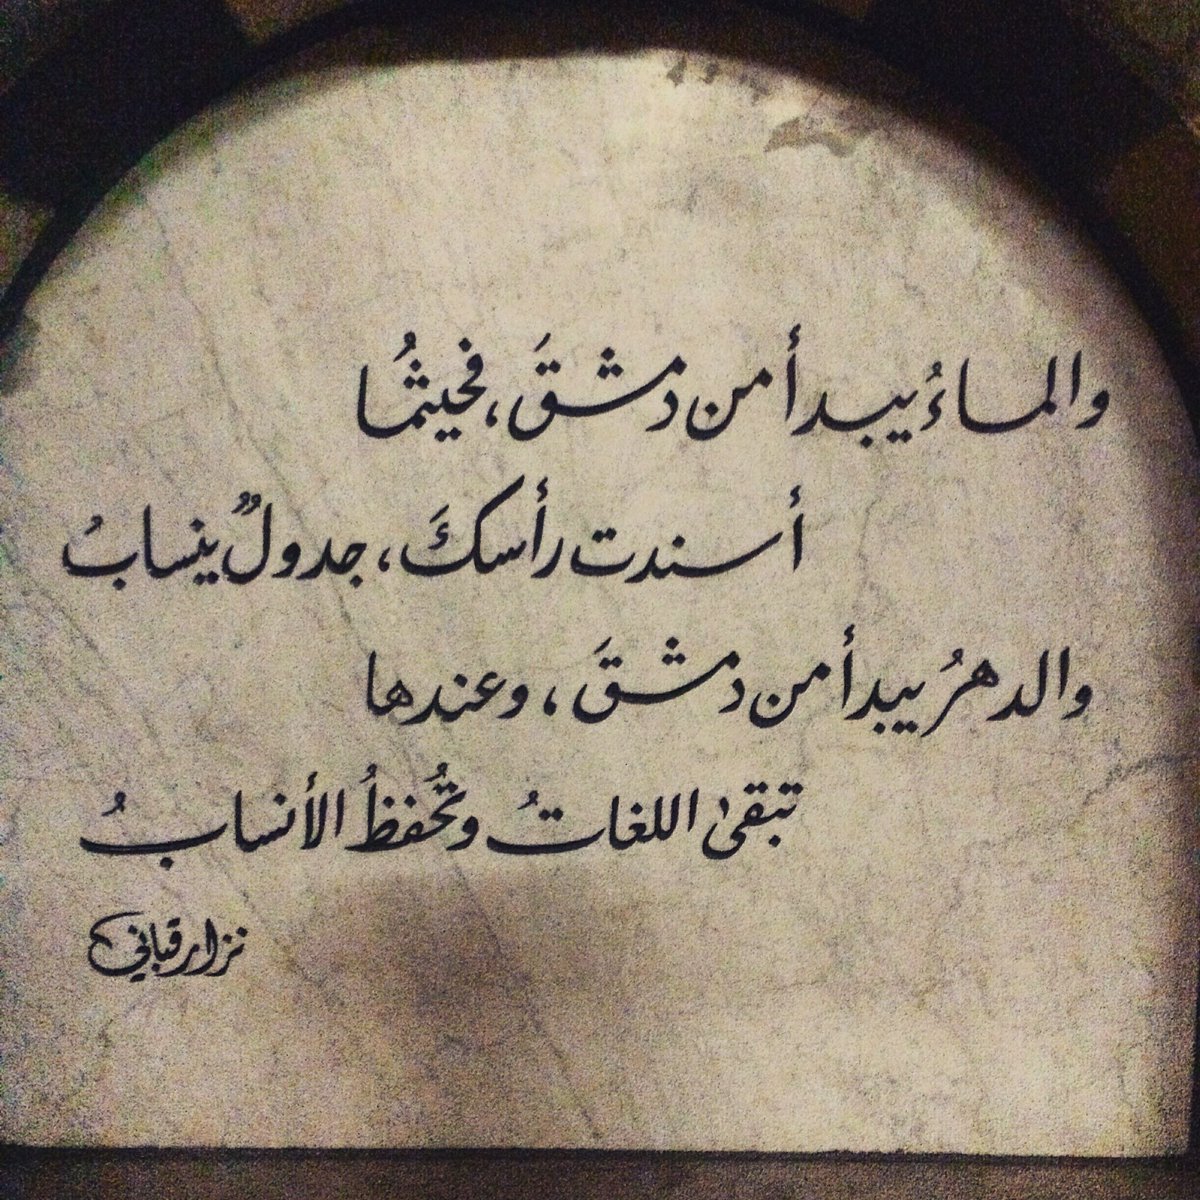 والماءُ يبدأ من دمشقَ، فحيثُما
أسندت رأسكَ، جدولٌ ينسابُ
والدهرُ يبدأ من دمشقَ، وعندها
تبقىٰ اللغاتُ وتُحفظُ الأنسابُ
نزار قباني